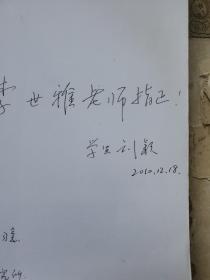 李世雅老师指正！
学生刘颖
2010.12.18.